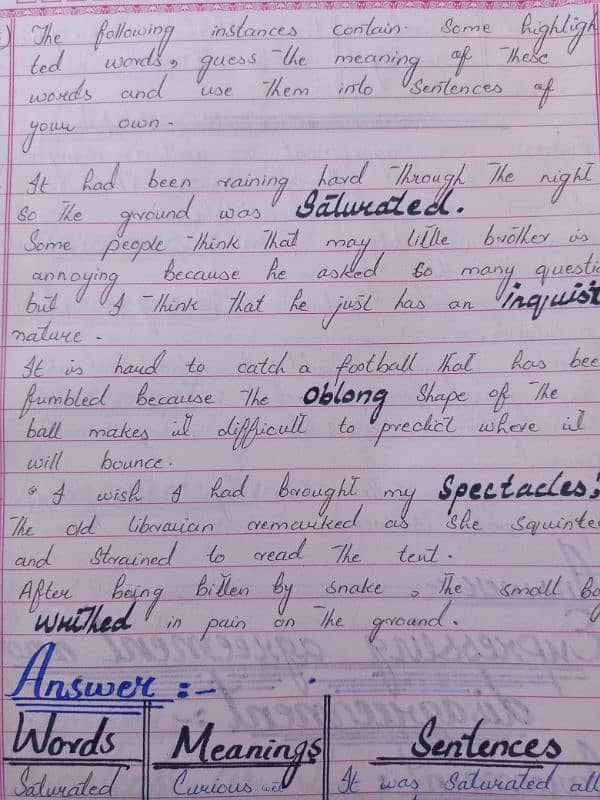 The following instances contain some highligh
ted words, guess the meaning of these
words and use them into sentences of
your own.
It had been raining hard through the night
so the ground was Saturated.
Some people think that may little brother is
annoying because he asked so many questi
but I think that he just has an inquisit
nature.
It is hard to catch a football that has bee
fumbled because the oblong shape of the
ball makes it difficult to predict where it
will bounce.
I wish I had brought my Spectacles,
The old librarian remarked as she squinte
and strained to read the tent.
After being bitten by snake, the small bo
writhed in pain on the ground.
Answer :-
Words Meanings Sentences
Saturated Curious wet It was Saturated all